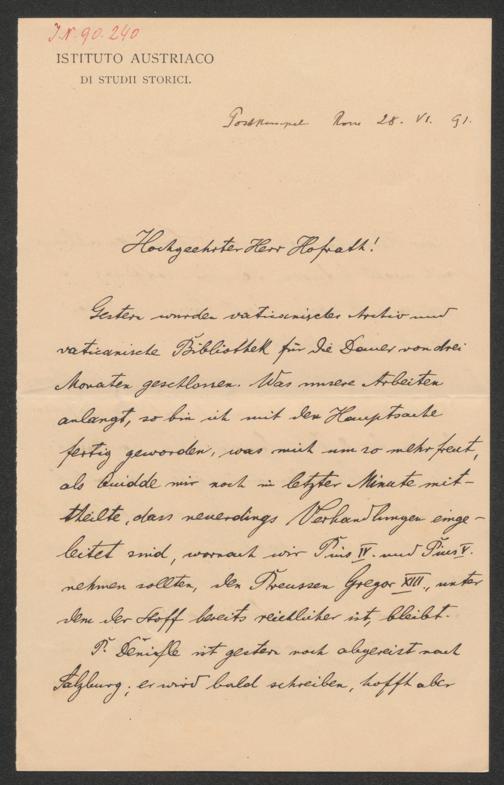 J.N. 90.240
ISTITUTO AUSTRIACO
DI STUDII STORICI.
Poststempel Rom 28. VI. 91.
Hochgeehrter Herr Hofrath!
Gestern wurden vaticanisches Archiv und
vaticanische Bibliothek für die Dauer von drei
Monaten geschlossen. Was unsere Arbeiten
anlangt, so bin ich mit der Hauptsache
fertig geworden, was mich um so mehr freut,
als Quidde mir noch in letzter Minute mit-
theilte, dass neuerdings Verhandlungen einge-
leitet sind, wornach wir Pius IV. und Pius V.
nehmen sollten, den Preussen Gregor XIII., unter
dem der Stoff bereits reichlicher ist, bleibt.
P. Denifle ist gestern noch abgereist nach
Salzburg; er wird bald schreiben, hofft aber